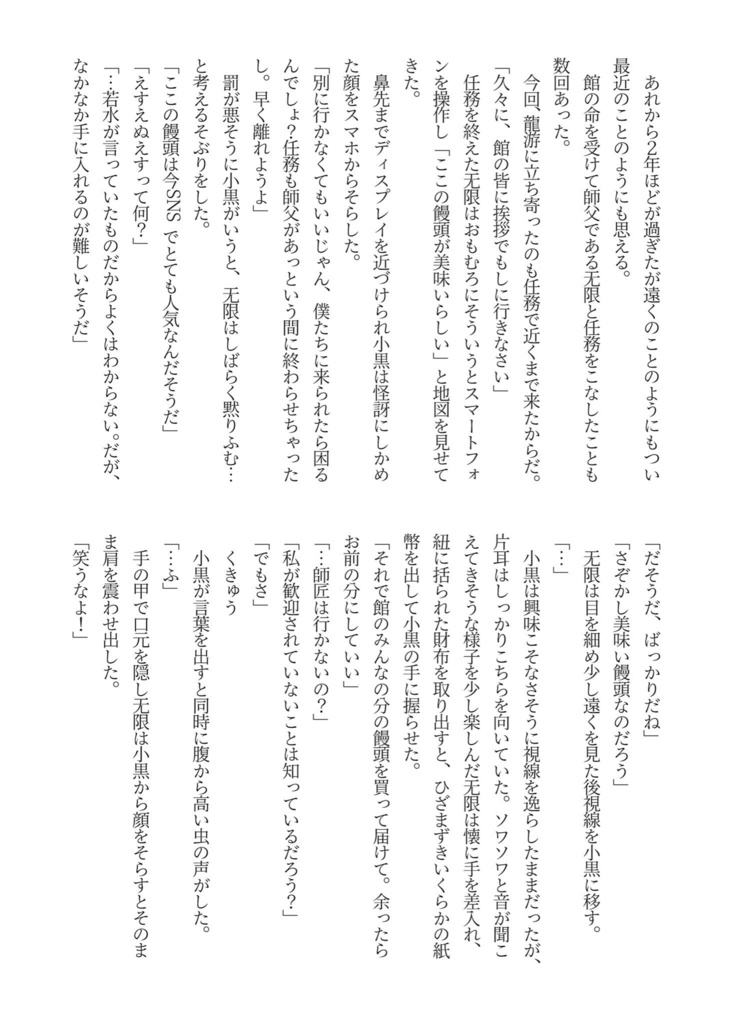 あれから2年ほどが過ぎたが遠くのことのようにもつい
最近のことのようにも思える。
館の命を受けて師父である无限と任務をこなしたことも
数回あった。
今回、龍游に立ち寄ったのも任務で近くまで来たからだ。
「久々に、館の皆に挨拶でもしに行きなさい」
任務を終えた无限はおもむろにそういうとスマートフォ
ンを操作し「ここの饅頭が美味いらしい」と地図を見せて
きた。
鼻先までディスプレイを近づけられ小黒は怪訝にしかめ
た顔をスマホからそらした。
「別に行かなくてもいいじゃん、僕たちに来られたら困る
んでしょ？任務も師父があっという間に終わらせちゃった
し。早く離れようよ」
罰が悪そうに小黒がいうと、无限はしばらく黙りふむ…
と考えるそぶりをした。
「ここの饅頭は今SNSでとても人気なんだそうだ」
「えすえぬえすって何？」
「…若水が言っていたものだからよくはわからない。だが、
なかなか手に入れるのが難しいそうだ」
「だそうだ、ばっかりだね」
「さぞかし美味い饅頭なのだろう」
无限は目を細め少し遠くを見た後視線を小黒に移す。
「…」
小黒は興味こそなさそうに視線を逸らしたままだったが、
片耳はしっかりこちらを向いていた。ソワソワと音が聞こ
えてきそうな様子を少し楽しんだ无限は懐に手を差入れ、
紐に括られた財布を取り出すと、ひざまずきいくらかの紙
幣を出して小黒の手に握らせた。
「それで館のみんなの分の饅頭を買って届けて。余ったら
お前の分にしていい」
「…師匠は行かないの？」
「私が歓迎されていないことは知っているだろう？」
「でもさ」
くきゅう
小黒が言葉を出すと同時に腹から高い虫の声がした。
「…ふ」
手の甲で口元を隠し无限は小黒から顔をそらすとそのま
ま肩を震わせ出した。
「笑うなよ！」